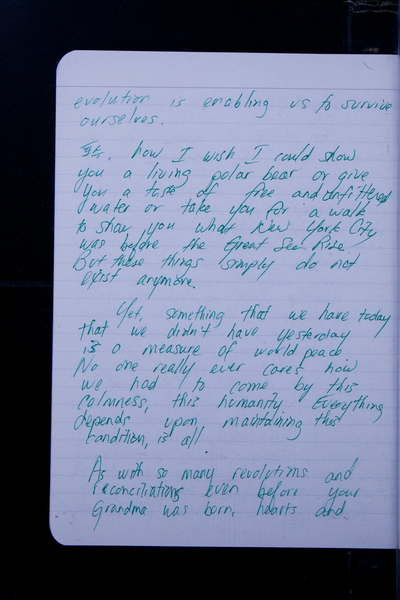 evolution is enabling us to survive
ourselves.
how I wish I could show
you a living polar bear or give
you a taste of free and unfiltered
water or take you for a walk
to show you what New York City
was before the Great Sea Rise.
But these things simply do not
exist anymore.
Yet, something that we have today
that we didn't have yesterday
is a measure of world peace.
No one really ever cares how
we had to come by this
calmness, this humanity. Everything
depends upon maintaining this
condition, is all.
As with so many revolutions and
reconciliations even before your
Grandma was born, hearts and